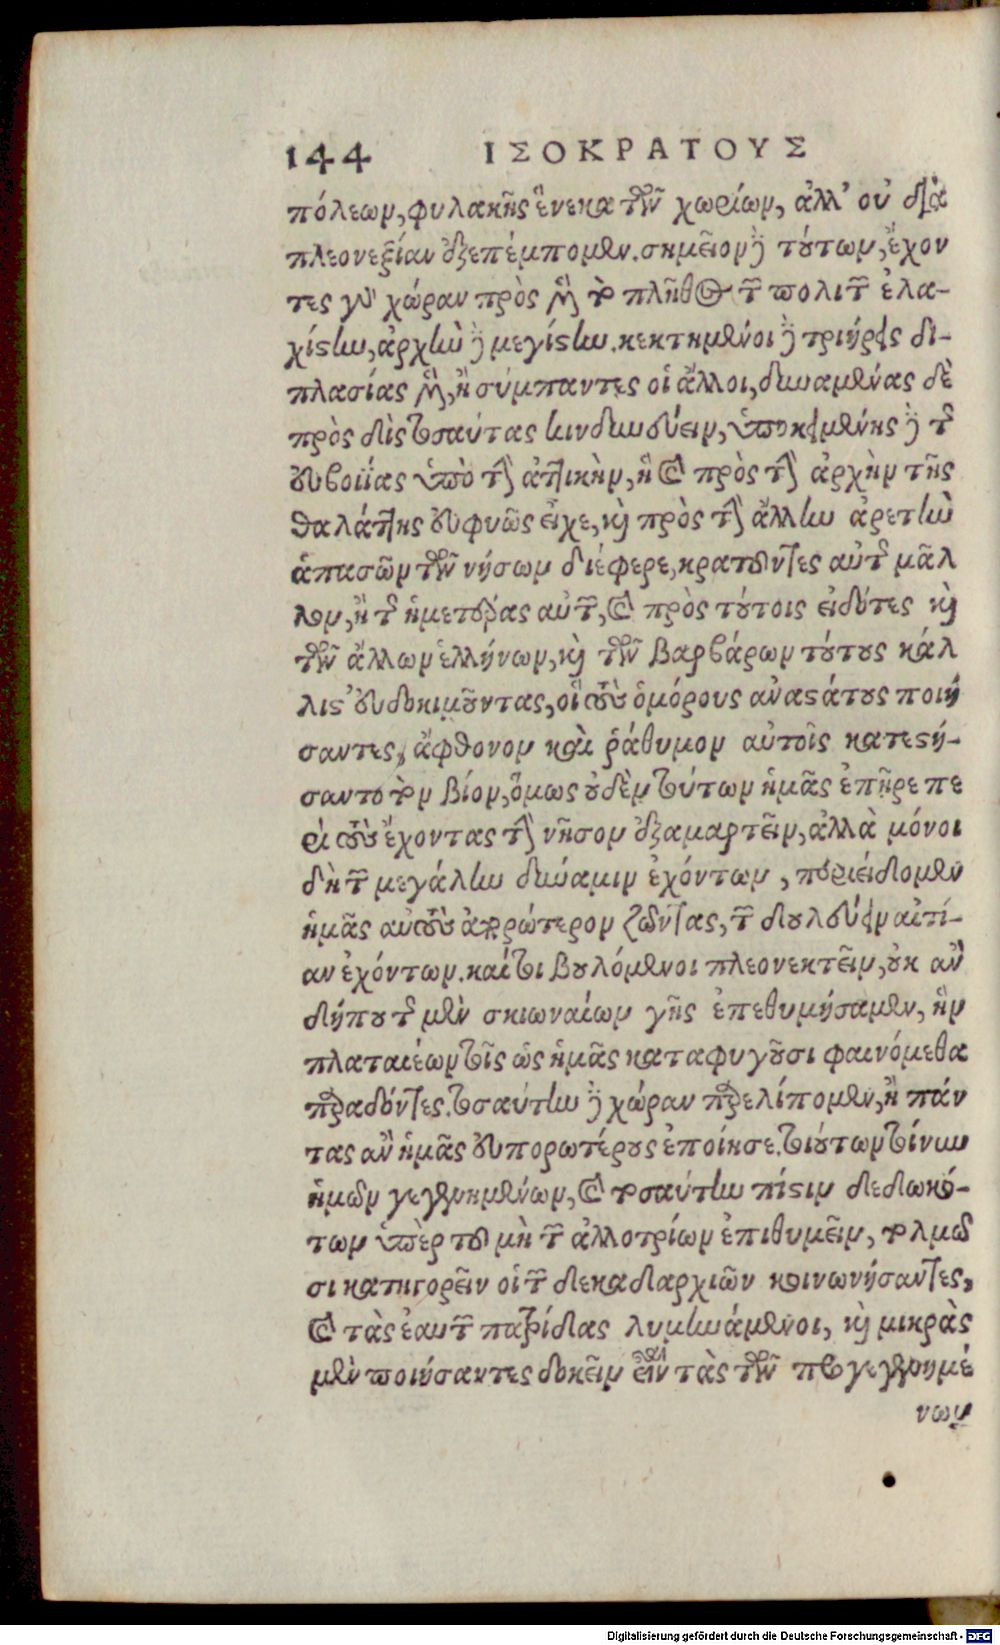 144 ΙΣΟΚΡΑΤΟΥΣ
πόλεων, φυλακῆς ἕνεκα τῶν χωρίων, ἀλλ’ οὐ διὰ
πλεονεξίαν ἐξεπέμπομεν. σημεῖον δὲ τούτων, ἔχον
τες γὰρ χώραν πρὸς μὲν τὸ πλῆθος τῶν πολιτῶν ἐλα-
χίστην, ἀρχὴν δὲ μεγίστην. κεκτημένοι δὲ τριήρεις δι-
πλασίας μὲν, ἢ σύμπαντες οἱ ἄλλοι, δυναμένας δὲ
πρὸς δὶς τοσαύτας κινδυνεύειν, ὑποκειμένης δὲ τῆς
εὐβοίας ὑπὸ τὴν ἀττικὴν, ἣ καὶ πρὸς τὴν ἀρχὴν τῆς
θαλάττης εὐφυῶς εἶχε, καὶ πρὸς τὴν ἄλλην ἀρετὴν
ἁπασῶν τῶν νήσων διέφερε, κρατοῦντες αὐτῆς μᾶλ
λον, ἢ τῆς ἡμετέρας αὐτῶν, καὶ πρὸς τούτοις εἰδότες καὶ
τῶν ἄλλων ἑλλήνων, καὶ τῶν βαρβάρων τούτους κάλ
λιστ’ εὐδοκιμοῦντας, οἳ τοὺς ὁμόρους ἀναστάτους ποιή
σαντες, ἄφθονον καὶ ῥάθυμον αὑτοῖς κατεστή-
σαντο τὸν βίον, ὅμως οὐδὲν τούτων ἡμᾶς ἐπῆρε πε
ρὶ τοὺς ἔχοντας τὴν νῆσον ἐξαμαρτεῖν, ἀλλὰ μόνοι
δὴ τῶν μεγάλην δύναμιν ἐχόντων, περιείδομεν
ἡμᾶς αὐτοὺς ἀπορώτερον ζῶντας, τῶν δουλεύειν αἰτί-
αν ἐχόντων. καίτοι βουλόμενοι πλεονεκτεῖν, οὐκ ἂν
δήπου τῆς μὲν σκιωναίων γῆς ἐπεθυμήσαμεν, ἣν
πλαταιέων τοῖς ὡς ἡμᾶς καταφυγοῦσι φαινόμεθα
παραδόντες. τοσαύτην δὲ χώραν παρελίπομεν, ἣ πάν
τας ἂν ἡμᾶς εὐπορωτέρους ἐποίησε. τοιούτων τοίνυν
ἡμῶν γεγενημένων, καὶ τοσαύτην πίστιν δεδωκό-
των ὑπὲρ τοῦ μὴ τῶν ἀλλοτρίων ἐπιθυμεῖν, τολμῶ
σι κατηγορεῖν οἱ τῶν δεκαδαρχιῶν κοινωνήσαντες,
καὶ τὰς ἑαυτῶν πατρίδας λυμηνάμενοι, καὶ μικρὰς
μὲν ποιήσαντες δοκεῖν εἶναι τὰς τῶν προγεγενημέ
νων
Digitalisierung gefördert durch die Deutsche Forschungsgemeinschaft - DFG